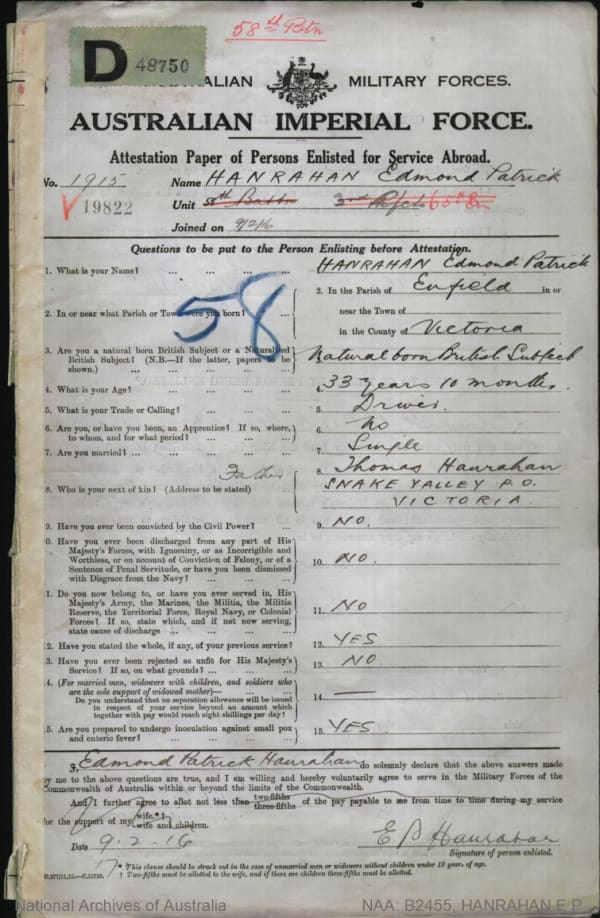 58th Btn
D 48750
AUSTRALIAN MILITARY FORCES.
AUSTRALIAN IMPERIAL FORCE.
Attestation Paper of Persons Enlisted for Service Abroad.
No. 1915 Name HANRAHAN Edmond Patrick
V 19822 Unit 58th Battn 3rd Rfcts
Joined on 9/2/16
Questions to be put to the Person Enlisting before Attestation.
1. What is your Name? ... ... ... ... HANRAHAN Edmond Patrick
58
2. In or near what Parish or Town were you born? ... 2. In the Parish of Enfield in or
near the Town of
in the County of Victoria
3. Are you a natural born British Subject or a Naturalised
British Subject? (N.B.—If the latter, papers to be
shown.) ... ... ... ... 3. Natural born British Subject
4. What is your Age? ... ... ... ... 4. 33 years 10 months.
5. What is your Trade or Calling? ... ... ... 5. Driver.
6. Are you, or have you been, an Apprentice? If so, where,
to whom, and for what period? ... ... ... 6. No
7. Are you married? ... ... ... ... 7. Single
Father 8. Thomas Hanrahan
8. Who is your next of kin? (Address to be stated) ... SNAKE VALLEY P.O.
VICTORIA.
9. Have you ever been convicted by the Civil Power? ... 9. NO.
0. Have you ever been discharged from any part of His
Majesty's Forces, with Ignominy, or as Incorrigible and
Worthless, or on account of Conviction of Felony, or of a
Sentence of Penal Servitude, or have you been dismissed
with Disgrace from the Navy? ... ... ... 10. NO.
1. Do you now belong to, or have you ever served in, His
Majesty's Army, the Marines, the Militia, the Militia
Reserve, the Territorial Force, Royal Navy, or Colonial
Forces? If so, state which, and if not now serving,
state cause of discharge ... ... ... 11. NO
2. Have you stated the whole, if any, of your previous service? 12. YES
3. Have you ever been rejected as unfit for His Majesty's
Service? If so, on what grounds? ... ... 13. NO
4. (For married men, widowers with children, and soldiers who
are the sole support of widowed mother)—
Do you understand that no separation allowance will be issued
in respect of your service beyond an amount which
together with pay would reach eight shillings per day? 14. —
5. Are you prepared to undergo inoculation against small pox
and enteric fever? ... ... ... ... 15. YES.
I, Edmond Patrick Hanrahan do solemnly declare that the above answers made
by me to the above questions are true, and I am willing and hereby voluntarily agree to serve in the Military Forces of the
Commonwealth of Australia within or beyond the limits of the Commonwealth.
And I further agree to allot not less than two-fifths three-fifths of the pay payable to me from time to time during my service
for the support of my wife.*† wife and children.
Date 9.2.16 E P Hanrahan
Signature of person enlisted.
* This clause should be struck out in the case of unmarried men or widowers without children under 18 years of age.
† Two-fifths must be allotted to the wife, and if there are children three-fifths must be allotted.
National Archives of Australia NAA: B2455, HANRAHAN E P